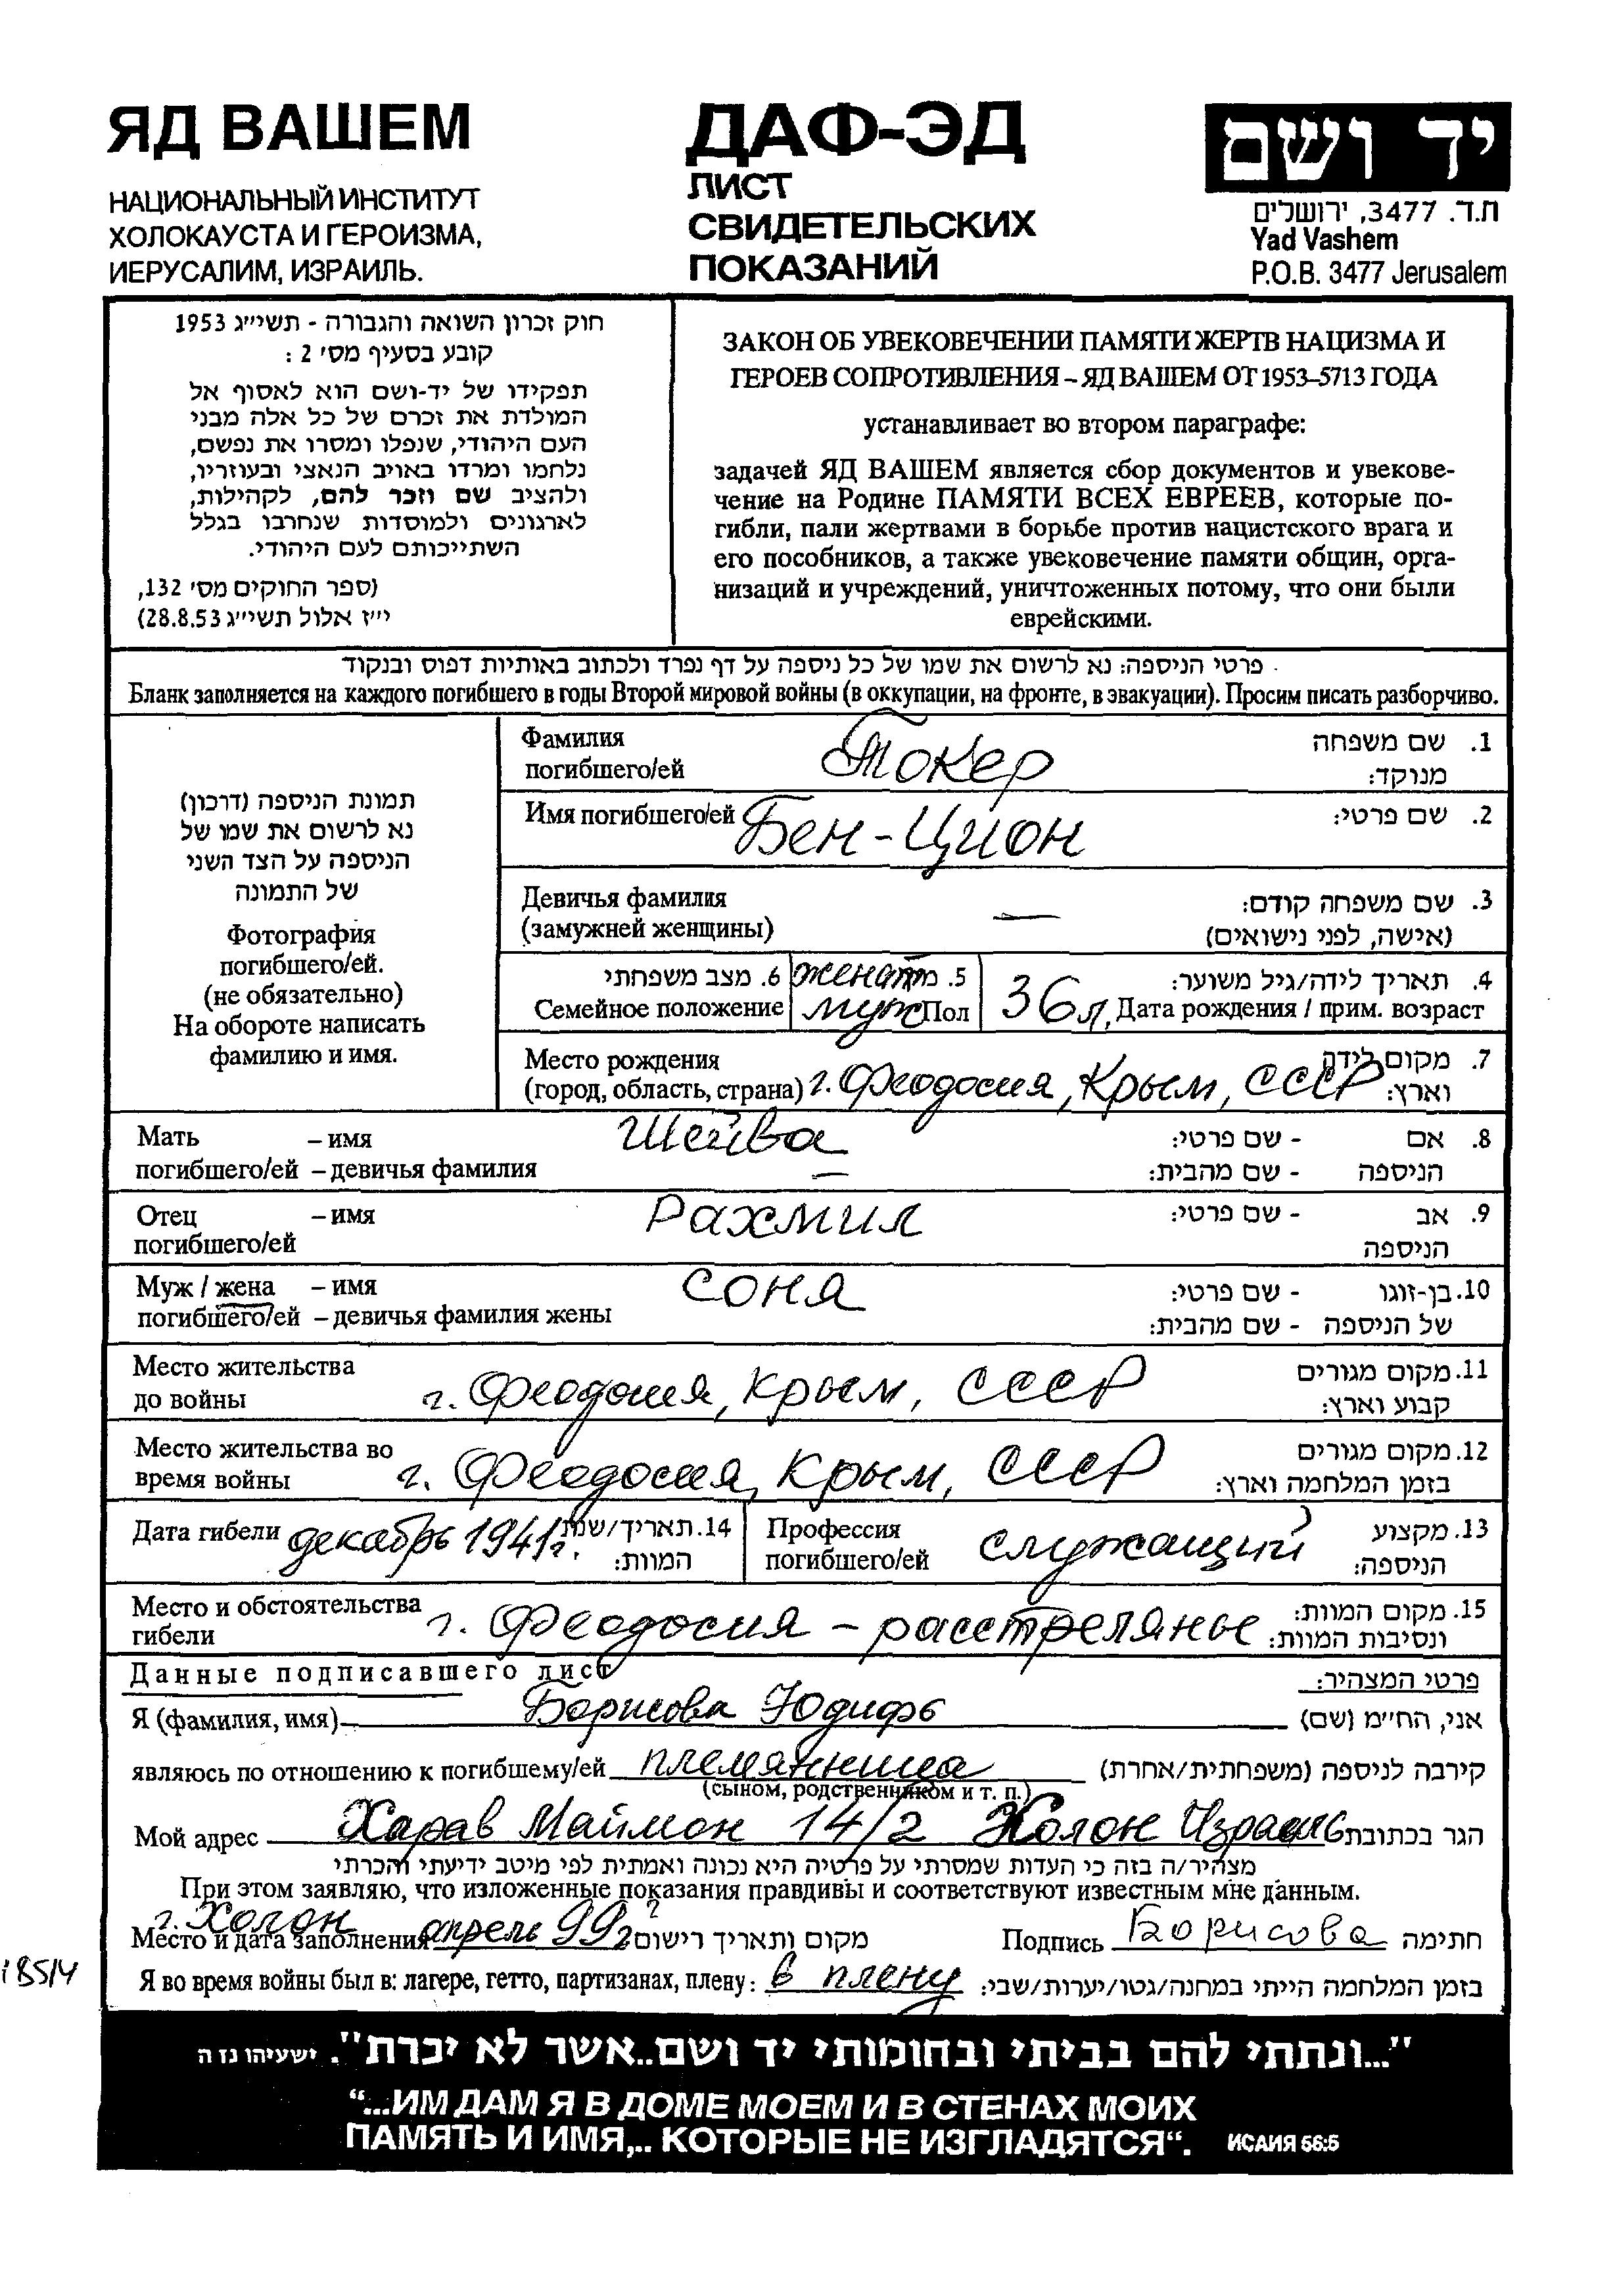 ЯД ВАШЕМ
НАЦИОНАЛЬНЫЙ ИНСТИТУТ
ХОЛОКАУСТА И ГЕРОИЗМА,
ИЕРУСАЛИМ, ИЗРАИЛЬ.
ДАФ-ЭД
ЛИСТ
СВИДЕТЕЛЬСКИХ
ПОКАЗАНИЙ
יד ושם
ת.ד. 3477, ירושלים
Yad Vashem
P.O.B. 3477 Jerusalem
חוק זכרון השואה והגבורה - תשי״ג 1953
קובע בסעיף מס׳ 2 :
תפקידו של יד-ושם הוא לאסוף אל
המולדת את זכרם של כל אלה מבני
העם היהודי, שנפלו ומסרו את נפשם,
נלחמו ומרדו באויב הנאצי ובעוזריו,
ולהציב שם וזכר להם, לקהילות,
לארגונים ולמוסדות שנחרבו בגלל
השתייכותם לעם היהודי.
(ספר החוקים מס׳ 132,
י״ז אלול תשי״ג 28.8.53)
ЗАКОН ОБ УВЕКОВЕЧЕНИИ ПАМЯТИ ЖЕРТВ НАЦИЗМА И
ГЕРОЕВ СОПРОТИВЛЕНИЯ – ЯД ВАШЕМ ОТ 1953–5713 ГОДА
устанавливает во втором параграфе:
задачей ЯД ВАШЕМ является сбор документов и увекове-
чение на Родине ПАМЯТИ ВСЕХ ЕВРЕЕВ, которые по-
гибли, пали жертвами в борьбе против нацистского врага и
его пособников, а также увековечение памяти общин, орга-
низаций и учреждений, уничтоженных потому, что они были
еврейскими.
פרטי הניספה: נא לרשום את שמו של כל ניספה על דף נפרד ולכתוב באותיות דפוס ובנקוד
Бланк заполняется на каждого погибшего в годы Второй мировой войны (в оккупации, на фронте, в эвакуации). Просим писать разборчиво.
תמונת הניספה (דרכון)
נא לרשום את שמו של
הניספה על הצד השני
של התמונה
Фотография
погибшего/ей.
(не обязательно)
На обороте написать
фамилию и имя.
Фамилия Токер 1. שם משפחה
погибшего/ей מנוקד:
Имя погибшего/ей Бен-Цион 2. שם פרטי:
Девичья фамилия — 3. שם משפחה קודם:
(замужней женщины) (אישה, לפני נישואים)
6. מצב משפחתי женат 5. מין 4. תאריך לידה/גיל משוער:
Семейное положение муж Пол 36 л, Дата рождения / прим. возраст
Место рождения 7. מקום לידה
(город, область, страна) г. Феодосия, Крым, СССР וארץ:
Мать – имя Шейва 8. אם - שם פרטי:
погибшего/ей – девичья фамилия — הניספה - שם מהבית:
Отец – имя Рахмил 9. אב - שם פרטי:
погибшего/ей הניספה
Муж / жена – имя Соня 10. בן-זוגו - שם פרטי:
погибшего/ей – девичья фамилия жены של הניספה - שם מהבית:
Место жительства 11. מקום מגורים
до войны г. Феодосия, Крым, СССР קבוע וארץ:
Место жительства во 12. מקום מגורים
время войны г. Феодосия, Крым, СССР בזמן המלחמה וארץ:
Дата гибели декабрь 1941г. 14. תאריך/שנת המוות:
Профессия служащий 13. מקצוע
погибшего/ей הניספה:
Место и обстоятельства г. Феодосия – расстрелянье 15. מקום המוות:
гибели ונסיבות המוות:
Данные подписавшего лист פרטי המצהיר:
Я (фамилия, имя) Борисова Юдифь אני, הח״מ (שם)
являюсь по отношению к погибшему/ей племянница קירבה לניספה (משפחתית/אחרת)
(сыном, родственником и т. п.)
Мой адрес Харав Маймон 14/2 Холон Израиль הגר בכתובת
מצהיר/ה בזה כי העדות שמסרתי על פרטיה היא נכונה ואמתית לפי מיטב ידיעתי והכרתי
При этом заявляю, что изложенные показания правдивы и соответствуют известным мне данным.
г. Холон
Место и дата заполнения апрель 99г מקום ותאריך רישום Подпись Борисова חתימה
Я во время войны был в: лагере, гетто, партизанах, плену: в плену בזמן המלחמה הייתי במחנה/גטו/יערות/שבי:
"...ונתתי להם בביתי ובחומותי יד ושם..אשר לא יכרת". ישעיהו נז ה
“...ИМ ДАМ Я В ДОМЕ МОЕМ И В СТЕНАХ МОИХ
ПАМЯТЬ И ИМЯ,.. КОТОРЫЕ НЕ ИЗГЛАДЯТСЯ“. ИСАИЯ 56:5